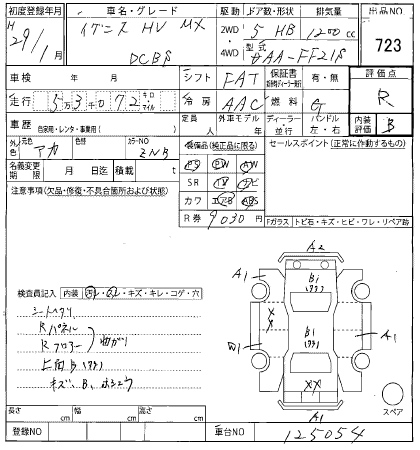 初度登録年月
H
29/1月
車名・グレード
イグニス HV MX
DCBS
駆動
2WD
4WD
ドア数・形状
5 HB
排気量
1200cc
型式
DAA-FF21S
出品NO
723
車検 年 月
シフト FAT
保証書 有・無
評価点
R
走行 53072 キロ マイル
冷房 AAC
燃料 G
車歴 自家用・レンタ・事業用( )
定員 人
外車モデル 年
ディーラー・並行
ハンドル 左・右
内装評価 B
外色
元色 アカ
色替
カラーNO ZNB
装備品(純正品に限る)
セールスポイント(正常に作動するもの)
名義変更期限 月 日迄
積載 t
PS PW AW
SR TV ナビ
カワ エアB ABS
R券 9030円
注意事項(欠品・修復・不具合箇所および状態)
Fガラス トビ石・キズ・ヒビ・ワレ・リペア跡
検査員記入 内装 汚レ・スレ・キズ・キレ・コゲ・穴
シートヘタリ
Rパネル
Rフロアー
曲がり
上面B
キズ、B、ホシュウ
A2
A1
A1
B1
B1
XX
XX
A1
A1
スペア
長さ cm
幅 cm
高さ cm
登録NO
車台NO 125054